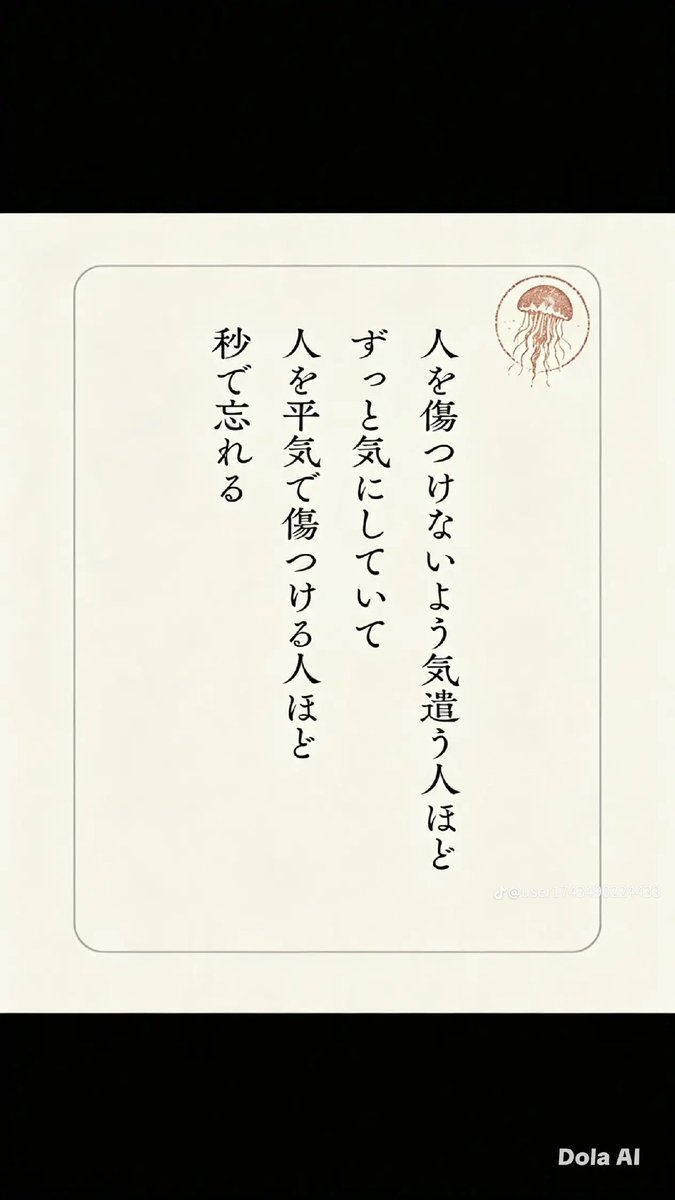 人を傷つけないよう気遣う人ほど
ずっと気にしていて
人を平気で傷つける人ほど
秒で忘れる
@user1743490224433
Dola AI